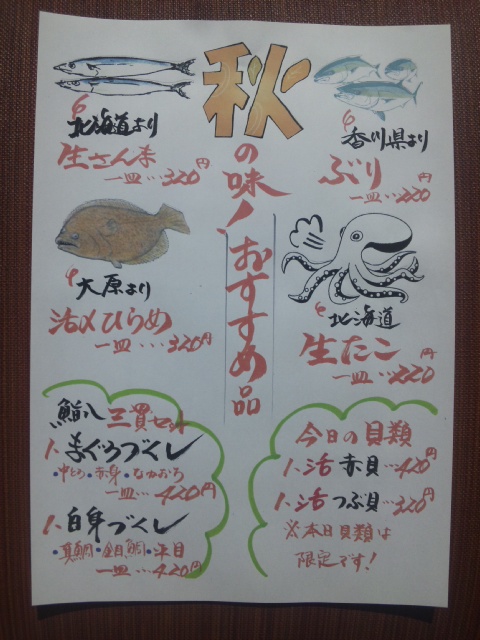 秋
の味!おすすめ品
北海道より
生さんま
一皿…320円
香川県より
ぶり
一皿…220円
大原より
活〆ひらめ
一皿…320円
北海道
生たこ
一皿…220円
鮨八 三貫セット
1、まぐろづくし
・中とろ・赤身・なかおち
一皿…420円
1、白身づくし
・真鯛・金目鯛・平目
一皿…420円
今日の貝類
1、活 赤貝…420円
1、活つぶ貝…320円
※本日貝類は
限定です!